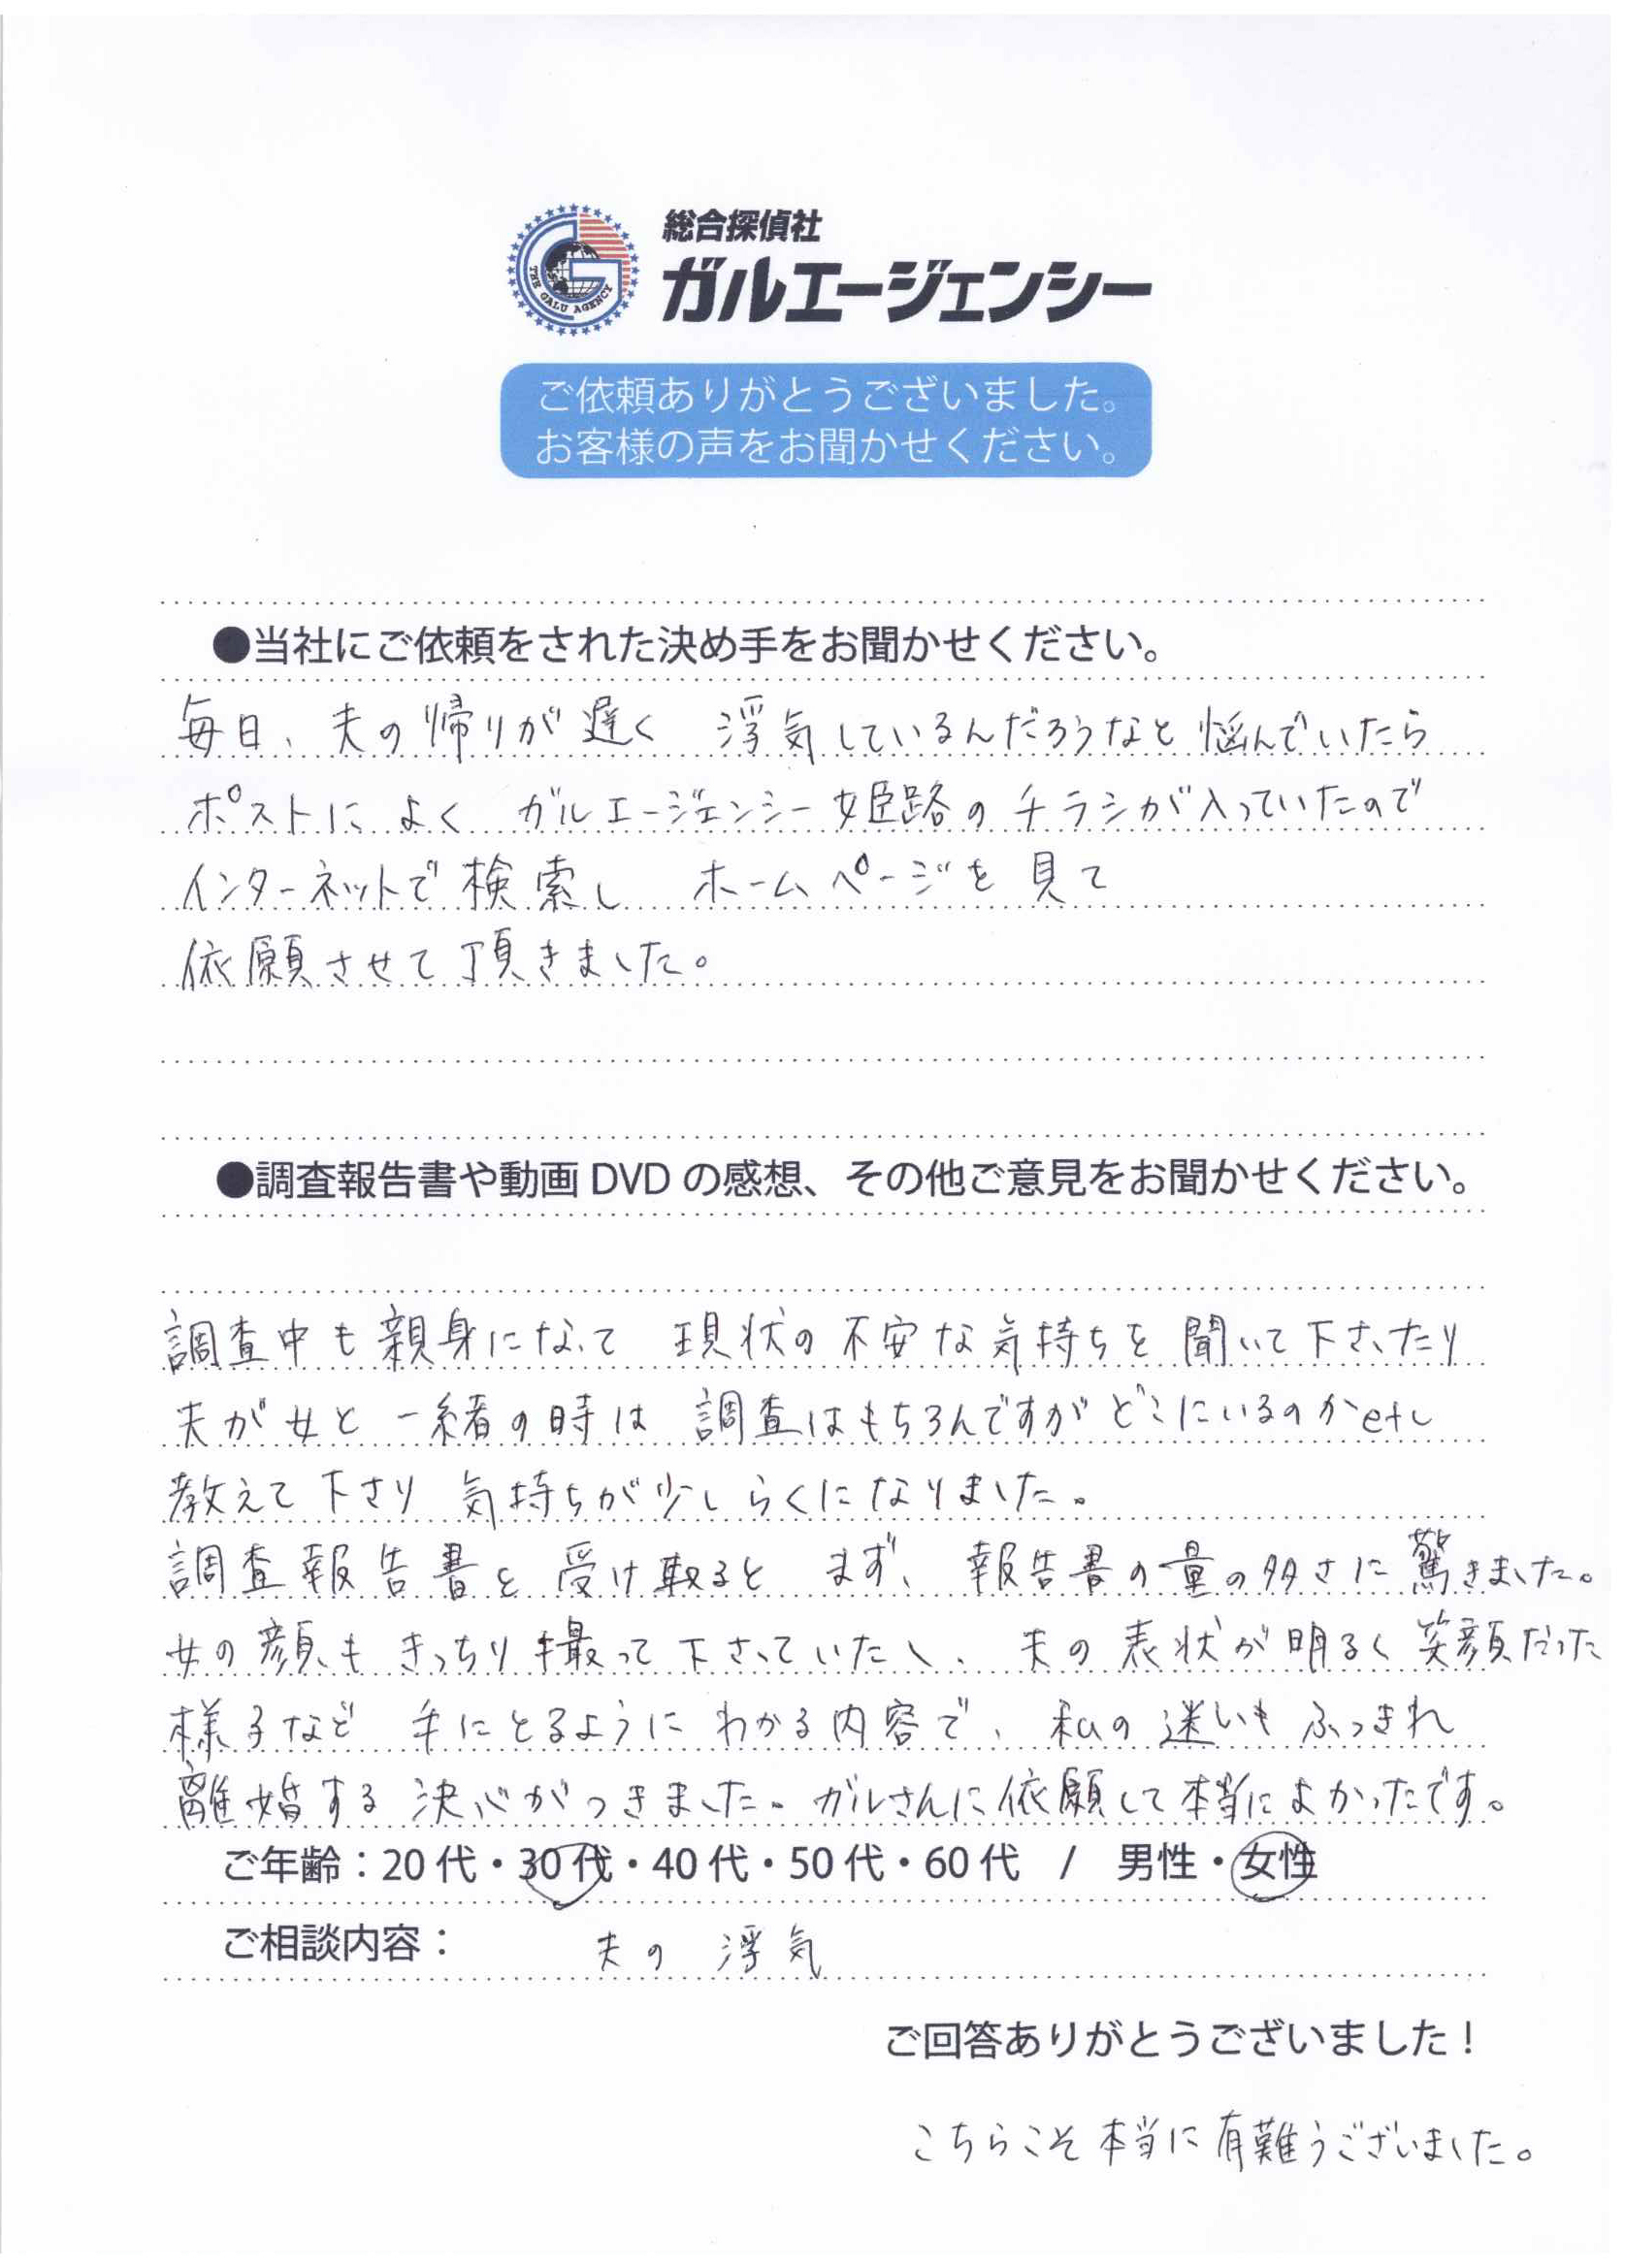 総合探偵社
ガルエージェンシー
THE GALU AGENCY
ご依頼ありがとうございました。
お客様の声をお聞かせください。
●当社にご依頼をされた決め手をお聞かせください。
毎日、夫の帰りが遅く 浮気しているんだろうなと悩んでいたら
ポストによく ガルエージェンシー姫路のチラシが入っていたので
インターネットで検索し ホームページを見て
依願させて頂きました。
●調査報告書や動画 DVD の感想、その他ご意見をお聞かせください。
調査中も親身になって 現状の不安な気持ちを聞いて下さったり
夫が女と一緒の時は 調査はもちろんですがどこにいるのかetc
教えて下さり 気持ちが少しらくになりました。
調査報告書を受け取ると まず、報告書の量の多さに驚きました。
女の顔もきっちり撮って下さっていたし、夫の表状が明るく笑顔だった
様子など 手にとるようにわかる内容で、私の迷いもふっきれ
離婚する決心がつきました。ガルさんに依願して本当によかったです。
ご年齢：20代・30代・40代・50代・60代 / 男性・女性
ご相談内容： 夫の浮気
ご回答ありがとうございました！
こちらこそ本当に有難うございました。